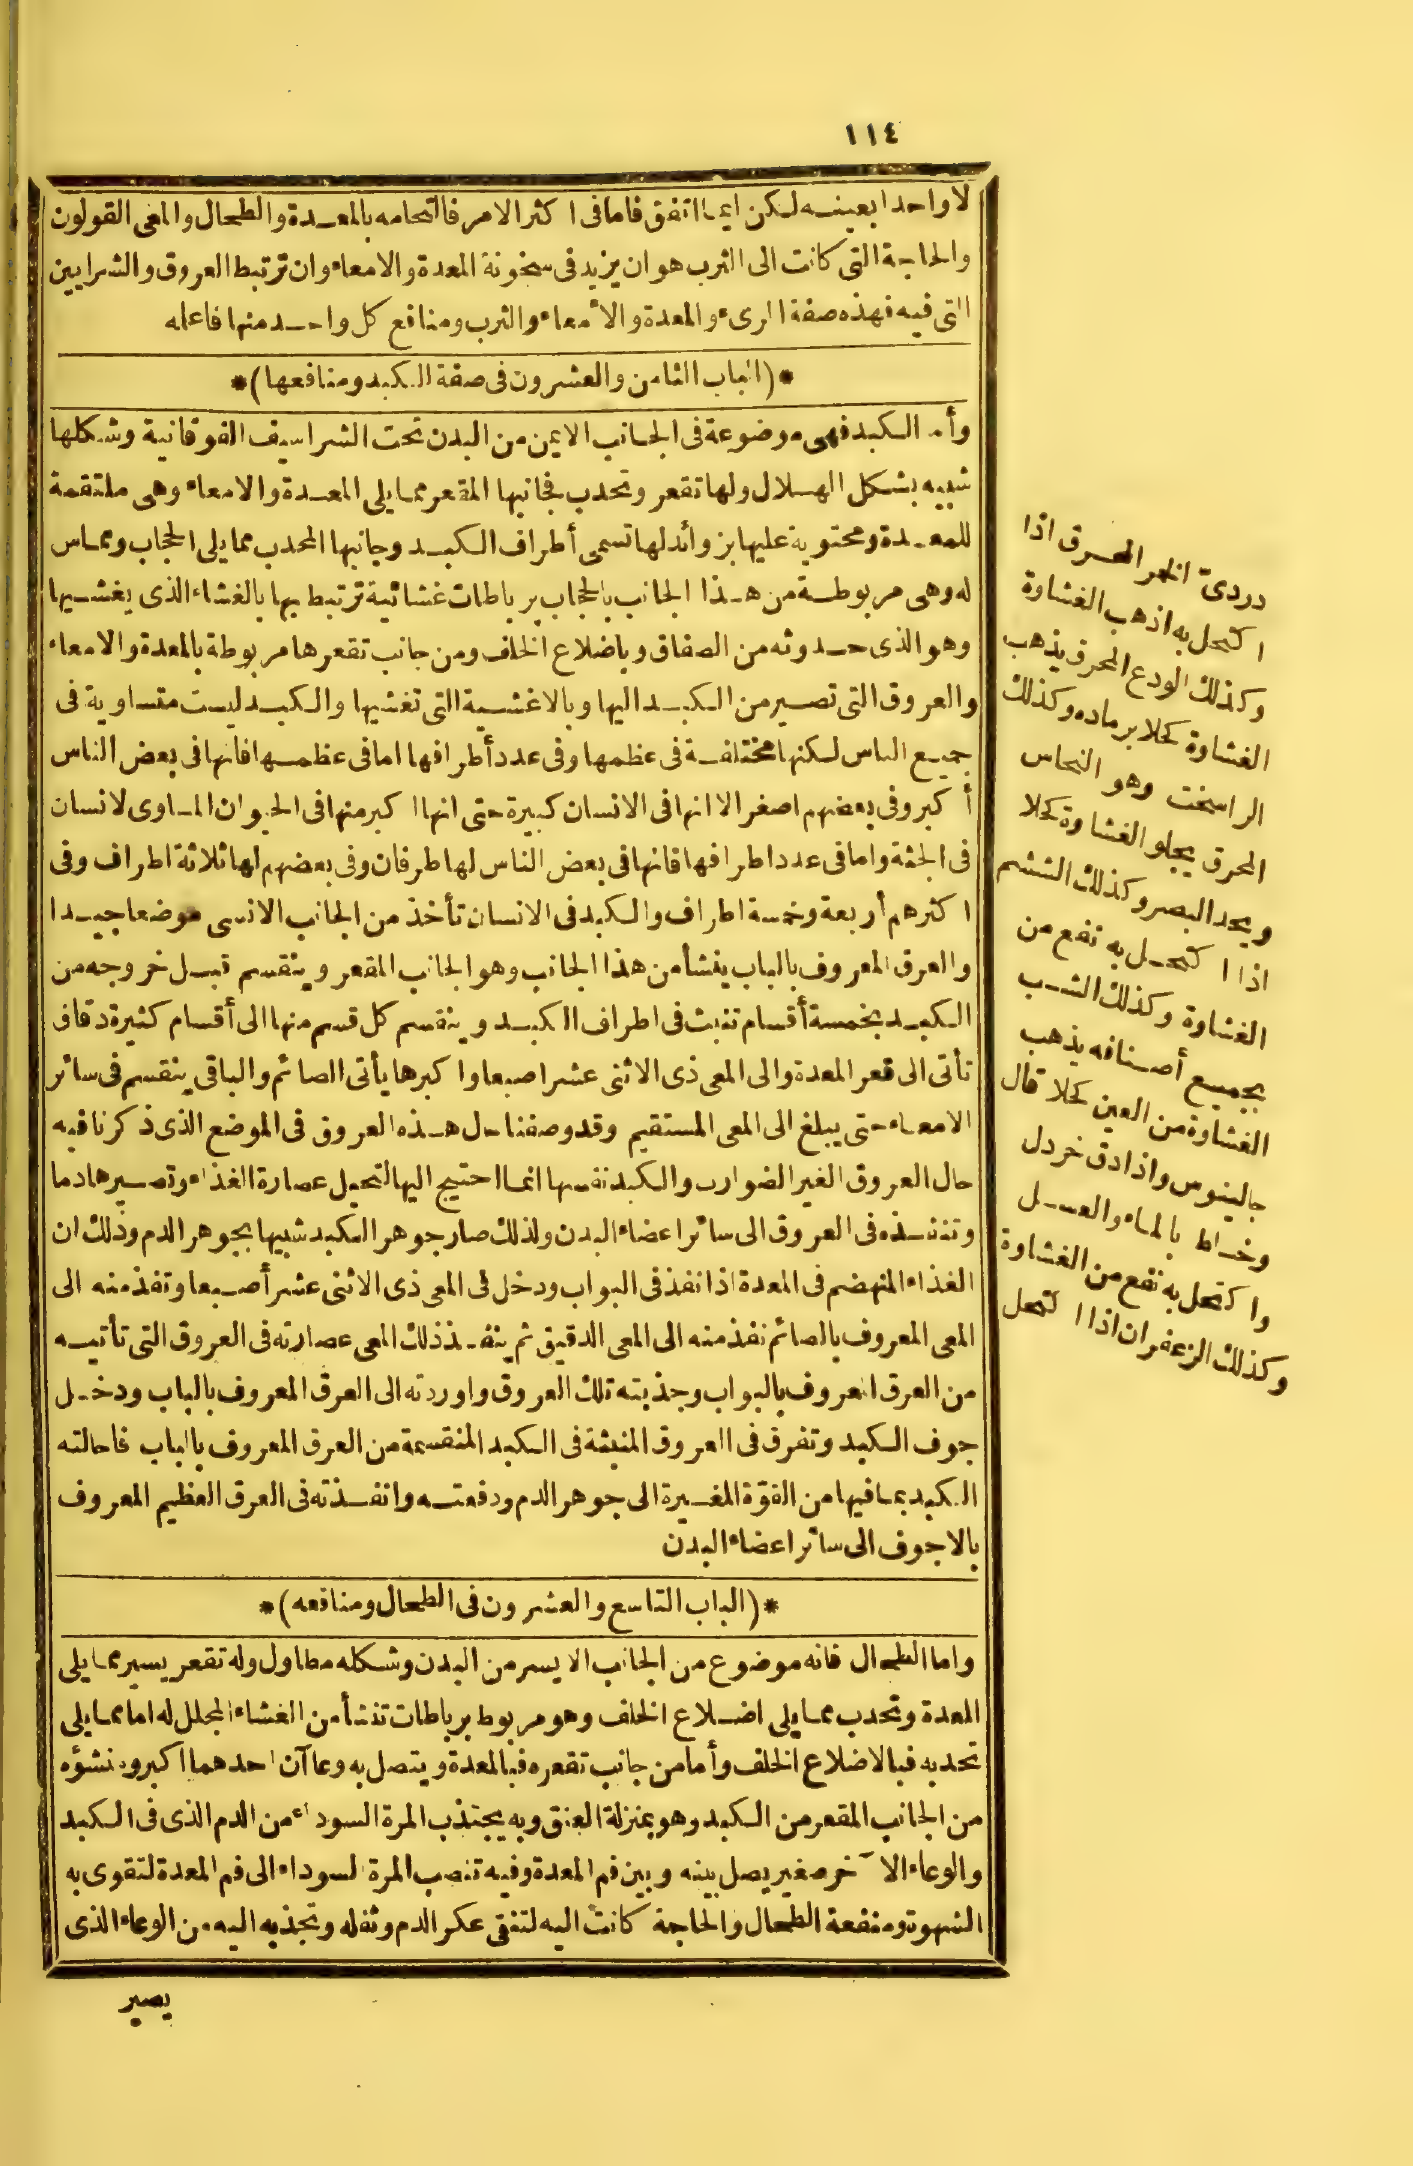 ١١٤
لا واحدا بعينه لكن ايما اتفق فاما فى اكثر الامر فالتحامه بالمعدة والطحال والمعى القولون
والحاجة التى كانت الى الثرب هو ان يزيد فى سخونة المعدة والامعاء وان ترتبط العروق والشرايين
التى فيه فهذه صفة المرىء والمعدة والأمعاء والثرب ومنافع كل واحد منها فاعله
*(الباب الثامن والعشرون فى صفة الكبد ومنافعها)*
وأما الكبد فهى موضوعة فى الجانب الايمن من البدن تحت الشراسيف الفوقانية وشكلها
شبيه بشكل الهلال ولها تقعر وتحدب فجانبها المقعر مما يلى المعدة والامعاء وهى ملتقمة
للمعدة ومحتوية عليها بزوائد لها تسمى أطراف الكبد وجانبها المحدب مما يلى الحجاب ومماس
له وهى مربوطة من هذا الجانب بالحجاب برباطات غشائية ترتبط بها بالغشاء الذى يغشيها
وهو الذى حدوثه من الصفاق وباضلاع الخلف ومن جانب تقعرها مربوطة بالمعدة والامعاء
والعروق التى تصير من الكبد اليها وبالاغشية التى تغشيها والكبد ليست متساوية فى
جميع الناس لكنها مختلفة فى عظمها وفى عدد أطرافها اما فى عظمها فانها فى بعض الناس
أكبر وفى بعضهم اصغر الا انها فى الانسان كبيرة حتى انها اكبر منها فى الحيوان المساوى لانسان
فى الجثة واما فى عدد اطرافها فانها فى بعض الناس لها طرفان وفى بعضهم لها ثلاثة اطراف وفى
اكثرهم أربعة وخمسة اطراف والكبد فى الانسان تأخذ من الجانب الانسى موضعا جيدا
والعرق المعروف بالباب ينشأ من هذا الجانب وهو الجانب المقعر وينقسم قبل خروجه من
الكبد بخمسة أقسام تنبث فى اطراف الكبد وينقسم كل قسم منها الى أقسام كثيرة دقاق
تأتى الى قعر المعدة والى المعى ذى الاثنى عشر اصبعا واكبرها يأتى الصائم والباقى ينقسم فى سائر
الامعاء حتى يبلغ الى المعى المستقيم وقد وصفنا حال هذه العروق فى الموضع الذى ذكرنا فيه
حال العروق الغير الضوارب والكبد نفسها انما احتيج اليها لتحيل عصارة الغذاء وتصيرها دما
وتنفذه فى العروق الى سائر اعضاء البدن ولذلك صار جوهر الكبد شبيها بجوهر الدم وذلك ان
الغذاء المنهضم فى المعدة اذا نفذ فى البواب ودخل فى المعى ذى الاثنى عشر أصبعا وتفذ منه الى
المعى المعروف بالصائم نفذ منه الى المعى الدقيق ثم ينفذ ذلك المعى عصارته فى العروق التى تأتيه
من العرق المعروف بالبواب وجذبته تلك العروق واوردته الى العرق المعروف بالباب ودخل
جوف الكبد وتفرق فى العروق المنبثة فى الكبد المنقسمة من العرق المعروف بالباب فاحالته
الكبد بما فيها من القوّة المغيرة الى جوهر الدم ودفعته وانفذته فى العرق العظيم المعروف
بالاجوف الى سائر اعضاء البدن
*(الباب التاسع والعشرون فى الطحال ومنافعه)*
واما الطحال فانه موضوع من الجانب الايسر من البدن وشكله مطاول وله تقعر يسير مما يلى
المعدة وتحدب مما يلى اضلاع الخلف وهو مربوط برباطات تنشأ من الغشاء المجلل له اما مما يلى
تحدبه فبالاضلاع الخلف وأما من جانب تقعره فبالمعدة ويتصل به وعاآن احدهما اكبر ونشؤه
من الجانب المقعر من الكبد وهو بمنزلة العنق وبه يجتذب المرة السوداء من الدم الذى فى الكبد
والوعاء الآخر صغير يصل بينه وبين فم المعدة وفيه تنصب المرة السوداء الى فم المعدة لتقوى به
الشهوة ومنفعة الطحال والحاجة كانت اليه لتنقى عكر الدم وثفله وتجذبه اليه من الوعاء الذى
يصير
دردىّ الخمر المحرق اذا
اكتحل به اذهب الغشاوة
وكذلك الودع المحرق يذهب
الغشاوة كحلا برماده وكذلك
الراسخت وهو النحاس
المحرق يجلو الغشاوة كحلا
ويحد البصر وكذلك الششم
اذا اكتحل به نفع من
الغشاوة وكذلك الشب
بجميع أصنافه يذهب
الغشاوة من العين كحلا قال
جالينوس واذا دق خردل
وخلط بالماء والعسل
واكتحل به نفع من الغشاوة
وكذلك الزعفران اذا اكتحل